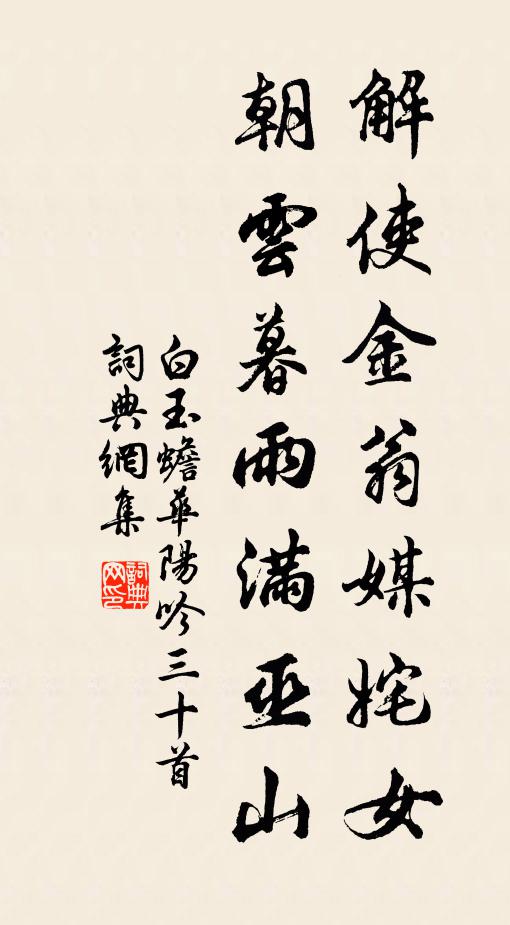 解使金翁媒姹女
朝雲暮雨滿巫山
白玉蟾華陽吟三十首
詞典網集
詞典網印